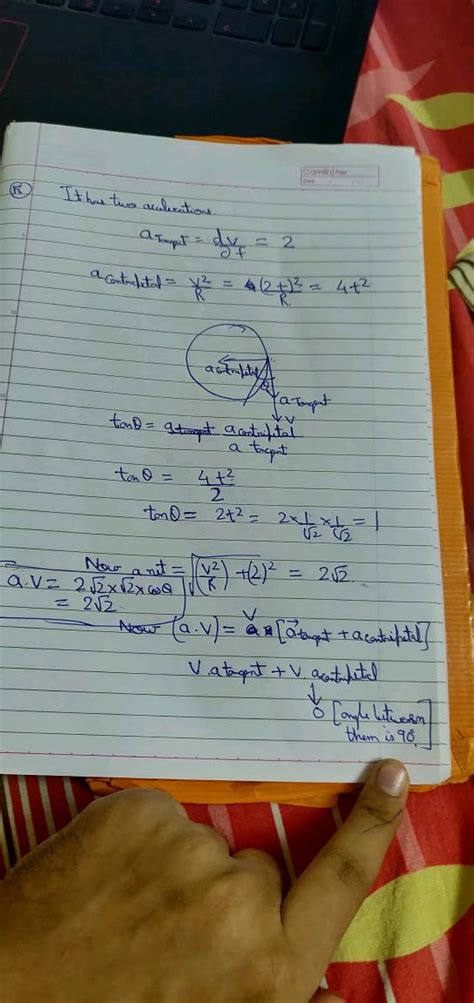 Camlin
Date
R
It has two acelerations.
a Tangent = dv/dt = 2
a Centripetal = V²/R = (2t)²/R = 4t²
a centripetal
θ
a Tangent
V
tanθ = a centripetal / a tangent
tanθ = 4t²/2
tanθ = 2t² = 2×1/√2×1/√2 = 1
Now a net = √(V²/R)+(2)² = 2√2
a.V = 2√2×√2×cosθ
= 2√2
Now (a.V) = V [a tangent + a centripetal]
V.a tangent + V.a centripetal
↓
0 [angle between
them is 90]